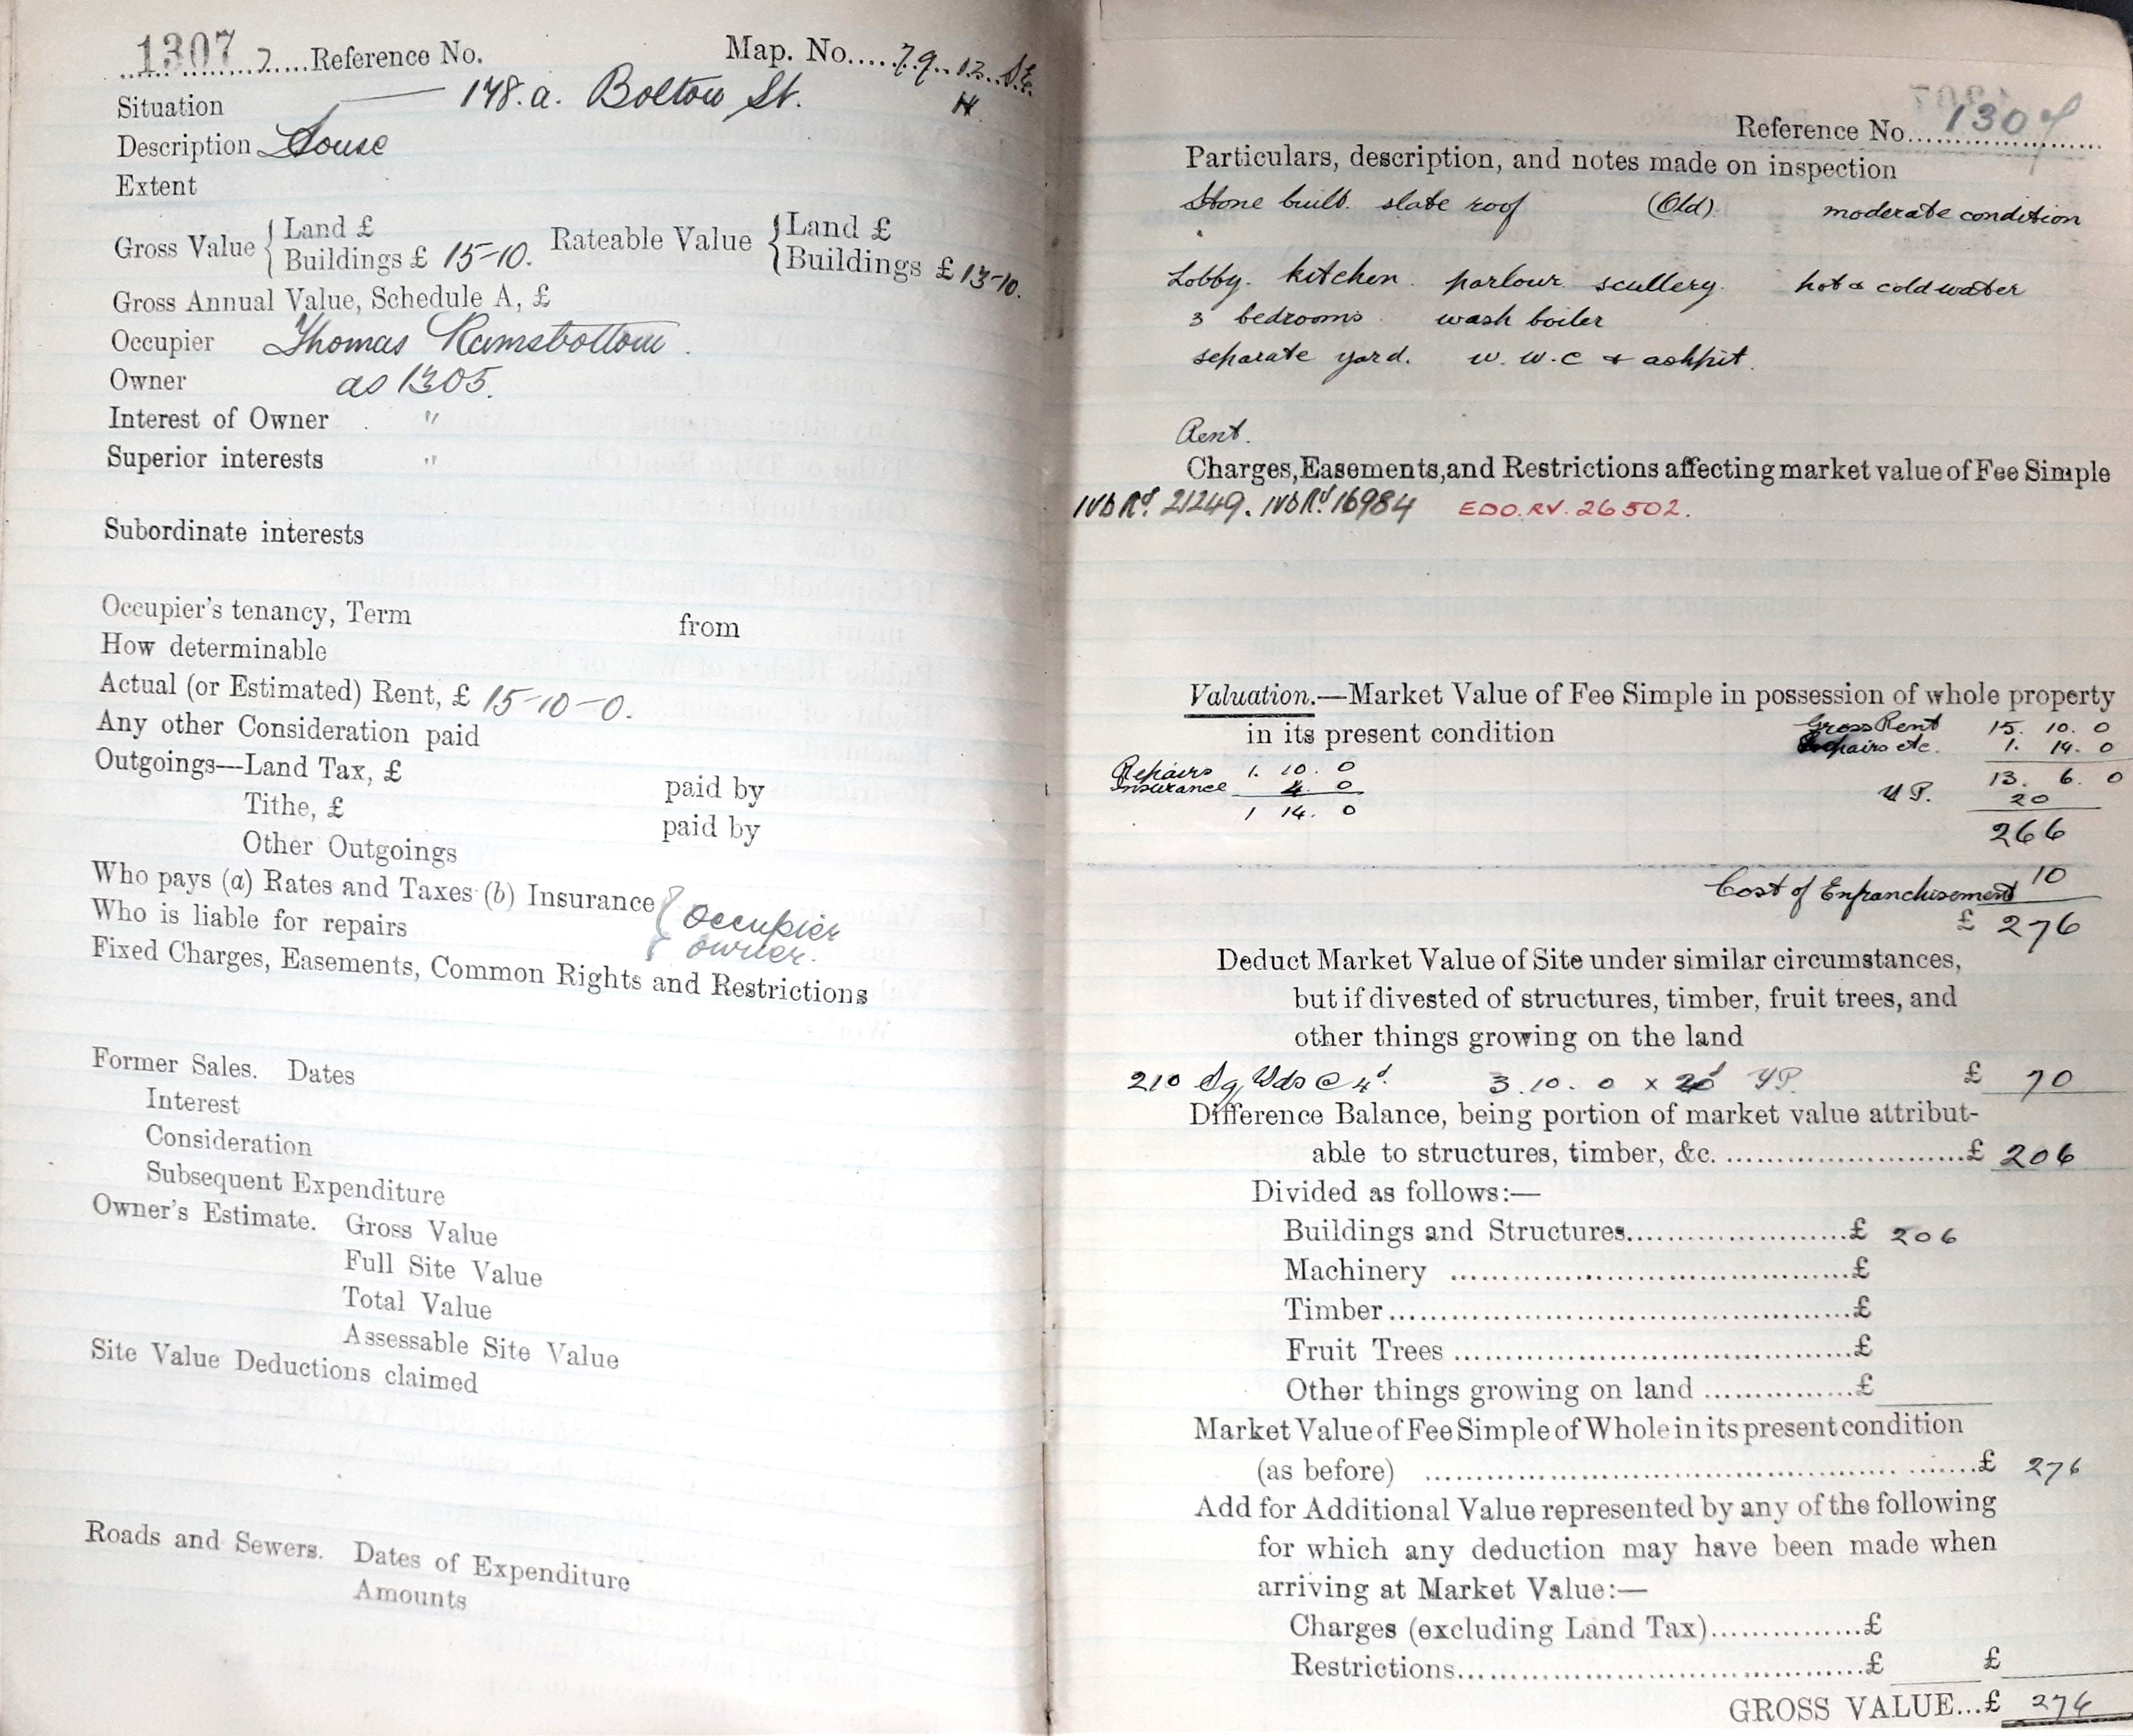 1307 7 Reference No. Map. No. 79. 12. S.E.
Situation 148.a. Bolton St. H
Description House
Extent
Gross Value { Land £ Rateable Value { Land £
Buildings £ 15-10. Buildings £ 13-10.
Gross Annual Value, Schedule A, £
Occupier Thomas Ramsbottom.
Owner as 1305.
Interest of Owner "
Superior interests "
Subordinate interests
Occupier's tenancy, Term from
How determinable
Actual (or Estimated) Rent, £ 15-10-0.
Any other Consideration paid
Outgoings—Land Tax, £ paid by
Tithe, £ paid by
Other Outgoings
Who pays (a) Rates and Taxes (b) Insurance { occupier
Who is liable for repairs { owner.
Fixed Charges, Easements, Common Rights and Restrictions
Former Sales. Dates
Interest
Consideration
Subsequent Expenditure
Owner's Estimate. Gross Value
Full Site Value
Total Value
Assessable Site Value
Site Value Deductions claimed
Roads and Sewers. Dates of Expenditure
Amounts
Reference No. 1307
Particulars, description, and notes made on inspection
Stone built. slate roof (Old). moderate condition
Lobby. kitchen. parlour. scullery. hot & cold water
3 bedrooms. wash boiler
separate yard. w. w.c & ashpit.
Rent.
Charges, Easements, and Restrictions affecting market value of Fee Simple
IVD Rd. 21249. IVD Rd. 16984 EDO.RV.26502.
Valuation.—Market Value of Fee Simple in possession of whole property
in its present condition Gross Rent 15. 10. 0
Repairs etc. 1. 14. 0
Repairs 1. 10. 0 13. 6. 0
Insurance 4. 0 Y.P. 20
1 14. 0 266
Cost of Enfranchisement 10
£ 276
Deduct Market Value of Site under similar circumstances,
but if divested of structures, timber, fruit trees, and
other things growing on the land
210 Sq Yds @ 4d. 3. 10. 0 x 20 YP. £ 70
Difference Balance, being portion of market value attribut-
able to structures, timber, &c. £ 206
Divided as follows:—
Buildings and Structures £ 206
Machinery £
Timber £
Fruit Trees £
Other things growing on land £
Market Value of Fee Simple of Whole in its present condition
(as before) £ 276
Add for Additional Value represented by any of the following
for which any deduction may have been made when
arriving at Market Value:—
Charges (excluding Land Tax) £
Restrictions £ £
GROSS VALUE...£ 276